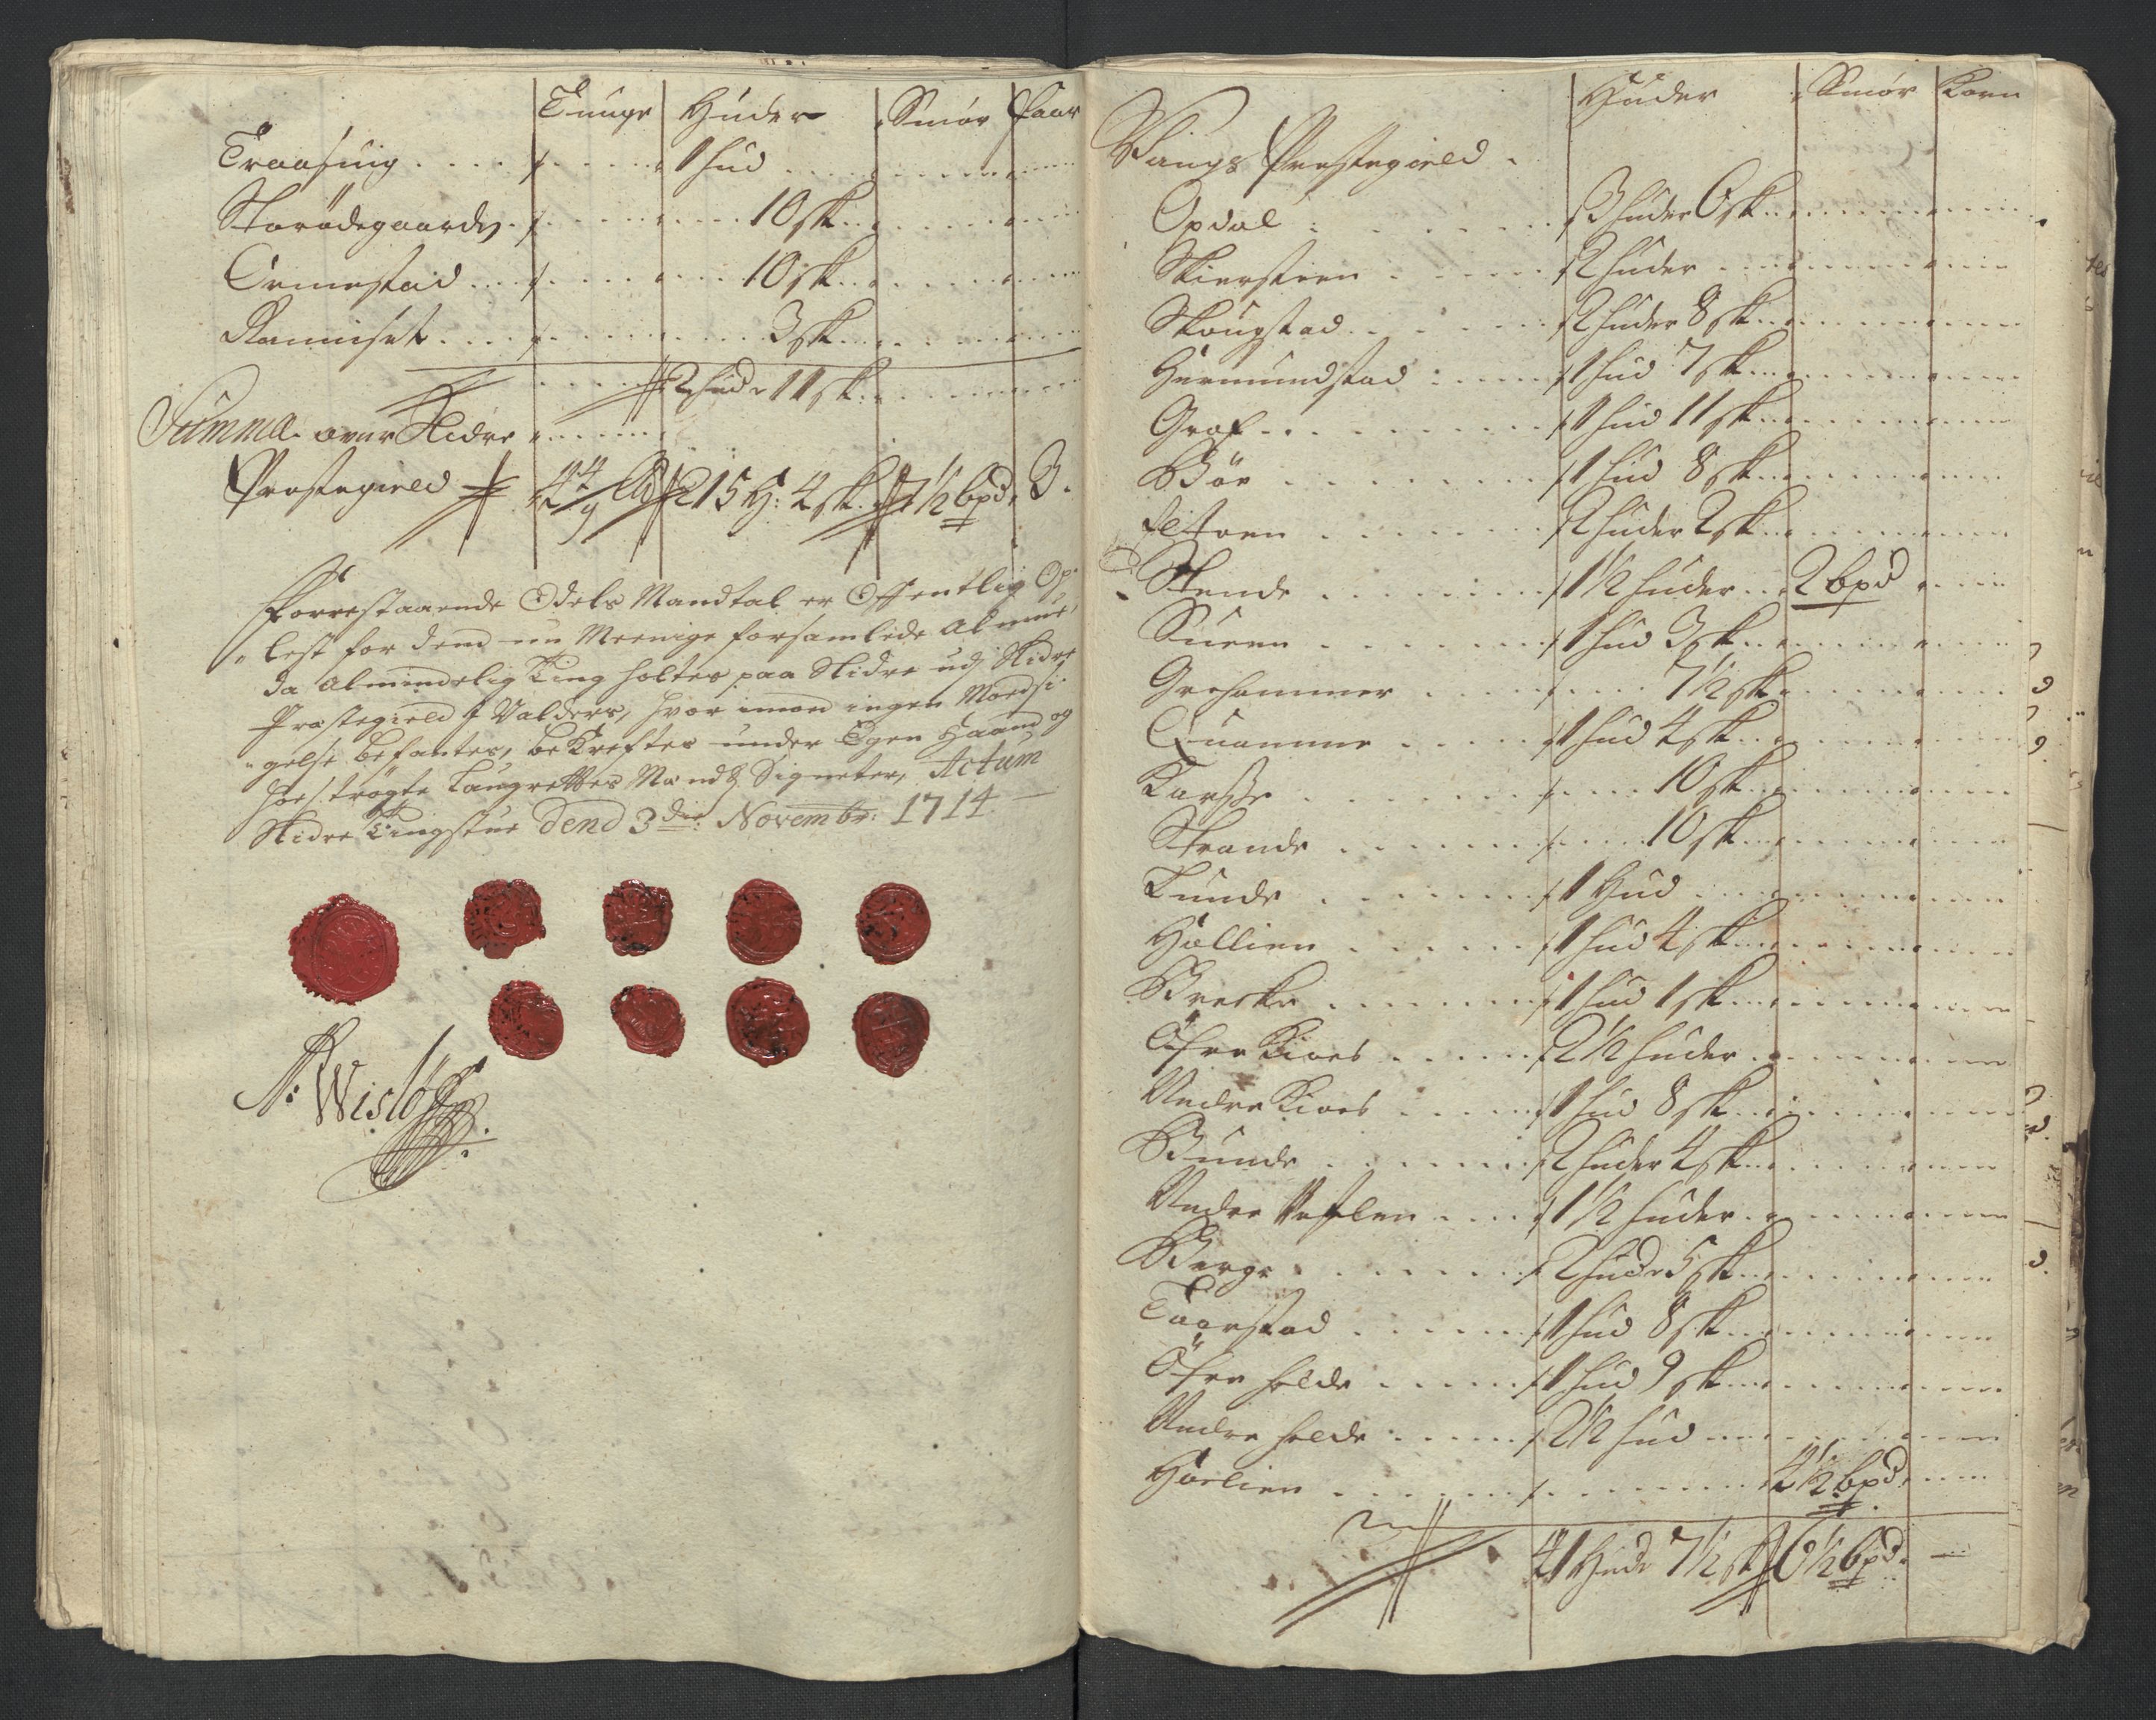 Tunge Huder Smør Faar
Traasing . . . . 1 hud
Storødegaarden . . 10 sk.
Ormestad . . . 10 sk.
Ramiset . . . . 3 sk.
2 hude 11 sk.
Summa over Slidre
Præstegield 215 H: 4 sk. 1½ bpd. 3.
Forrestaaende Odels Mandtal er Offentlig Op-
lest for dend nu Meenige forsamlede Almue,
da Almindelig Ting holtes paa Slidre udj Slidre
Præstegield J Valders, hvor imod ingen Moedsi-
gelse befantes, beKreftes under Egen Haand og
hos trøgte Laugrettes Mænds Signeter, Actum
Slidre Tingstue Dend 3die Novembr: 1714
N: Wisløff
Huder Smør Korn
Wangs Præstegield.
Opdal . . . 3 huder 6 sk.
Skiersteen . . . 2 huder
Skougstad . . . 2 huder 8 sk.
Hermundstad . . . 1 hud 7 sk.
Graf . . . 1 hud 11 sk.
Bøe . . . 1 hud 8 sk.
. . . 2 huder 2 sk.
Stende . . . 1½ huder . . 2 bpd
Sueen . . . 1 hud 3 sk.
Grehammer . . . 7½ sk.
Quamme . . . 1 hud 4 sk.
Karsse . . . 10 sk.
Strande . . . 10 sk.
Lunde . . . 1 Hud
Hallien . . . 1 hud 4 sk.
Brecke . . . 1 hud 1 sk.
Øfre Kioes . . . 2½ huder
Nedre Kioes . . . 1 hud 8 sk.
Bunde . . . 2 huder 4 sk.
Nedre Neflen . . . 1½ huder
Berge . . . 2 hude 5 sk.
Taarstad . . . 1 hud 8 sk.
Øfre helde . . . 1 hud 9 sk.
Nedre helde . . . 2½ hud
Hærlien . . . 4½ bpd.
41 Hude 7½ sk. 6½ bpd. —